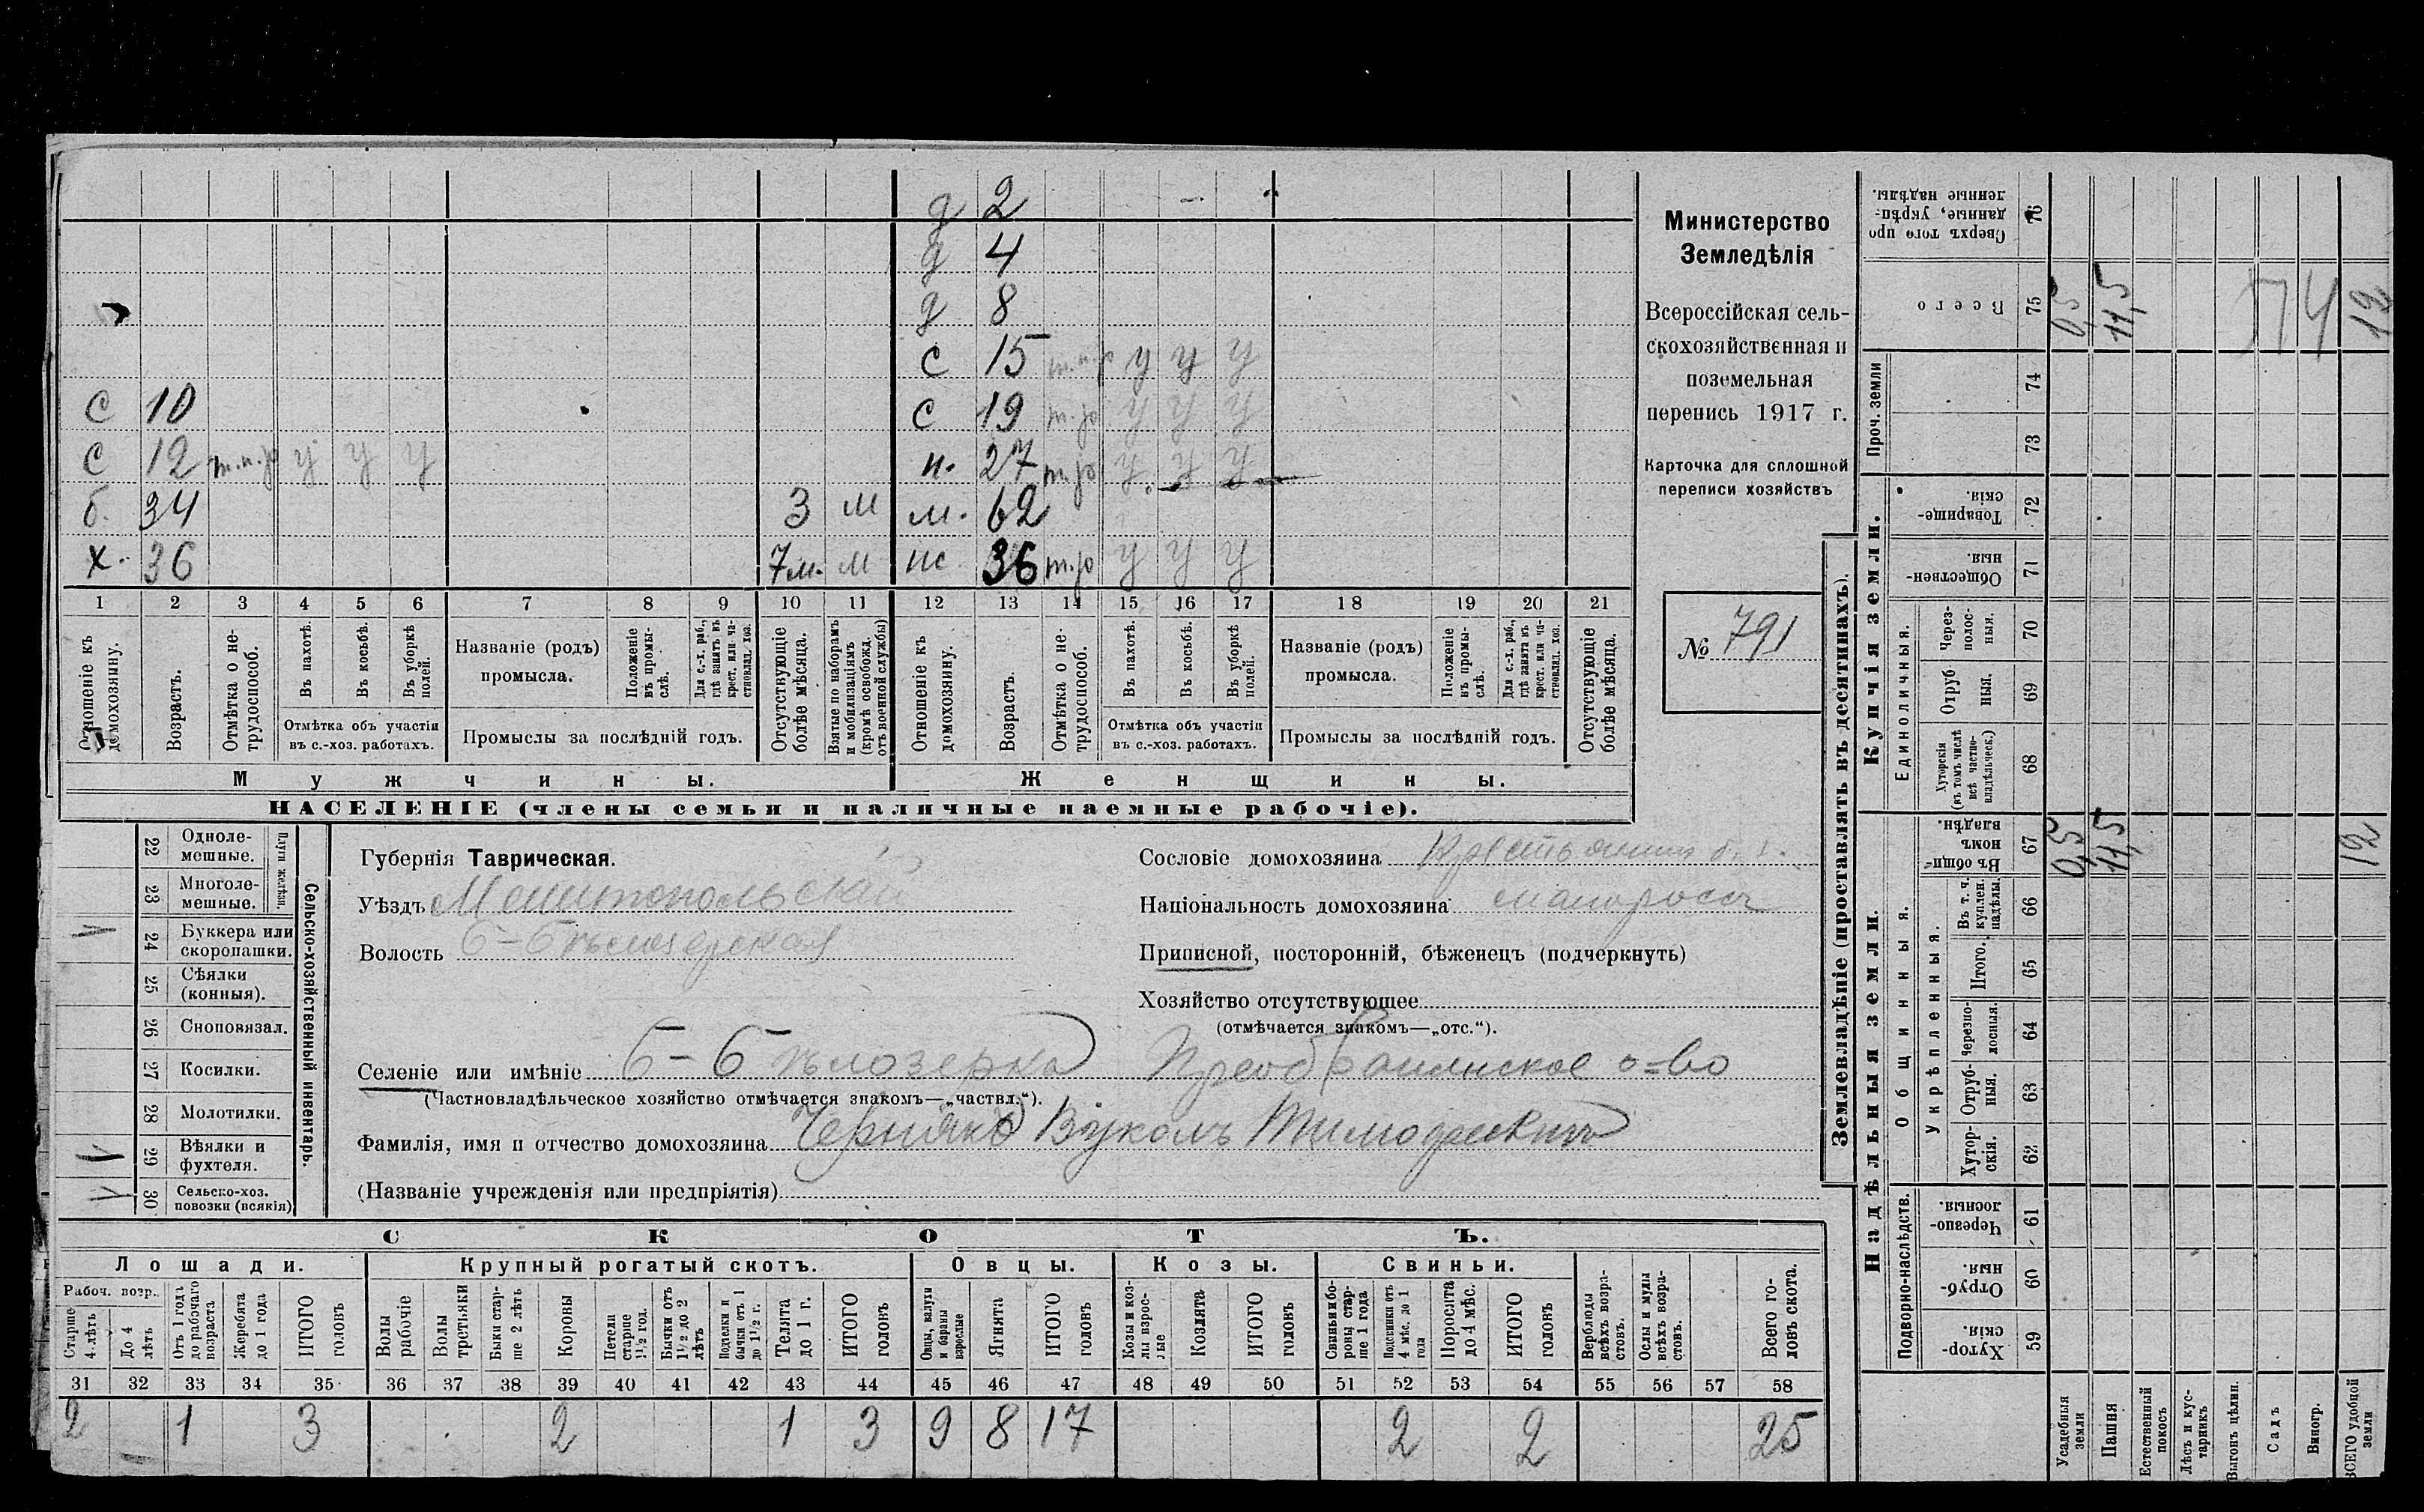 д 2
д 4
д 8
с 15 т.п.р у у у
с 10
с 19 т.р у у у
с 12 т.п.р у у у
н. 27 т.р у у у
б. 34 3 м
м. 62
х. 36 7 м. м
ж 36 т.р у у у
1 2 3 4 5 6 7 8 9 10 11 12 13 14 15 16 17 18 19 20 21
Отношеніе къ домохозяину.
Возрастъ.
Отмѣтка о нетрудоспособ.
Въ пахотѣ.
Въ косьбѣ.
Въ уборкѣ полей.
Отмѣтка объ участіи въ с.-хоз. работахъ.
Названіе (родъ) промысла.
Положеніе въ промыслѣ.
Для с.-х. раб., гдѣ занятъ въ крест. или частновлад. хоз.
Промыслы за послѣдній годъ.
Отсутствующіе болѣе мѣсяца.
Взятые по наборамъ и мобилизаціямъ (кромѣ освобожд. отъ военной службы)
Отношеніе къ домохозяину.
Возрастъ.
Отмѣтка о нетрудоспособ.
Въ пахотѣ.
Въ косьбѣ.
Въ уборкѣ полей.
Отмѣтка объ участіи въ с.-хоз. работахъ.
Названіе (родъ) промысла.
Положеніе въ промыслѣ.
Для с.-х. раб., гдѣ занята въ крест. или частновлад. хоз.
Промыслы за послѣдній годъ.
Отсутствующіе болѣе мѣсяца.
Мужчины.
Женщины.
НАСЕЛЕНІЕ (члены семьи и наличные наемные рабочіе).
Министерство
Земледѣлія
Всероссійская сель-
скохозяйственная и
поземельная
перепись 1917 г.
Карточка для сплошной
переписи хозяйствъ
№ 791
22 Одноле-мешные.
23 Многоле-мешные.
Плуги желѣзн.
24 Буккера или скоропашки.
25 Сѣялки (конныя).
26 Сноповязал.
27 Косилки.
28 Молотилки.
29 Вѣялки и фухтеля.
30 Сельско-хоз. повозки (всякія)
Сельско-хозяйственный инвентарь.
Губернія Таврическая.
Уѣздъ Мелитопольскій
Волость Б-Бѣлозерская
Сословіе домохозяина Крестьянинъ
Національность домохозяина малороссъ
Приписной, посторонній, бѣженецъ (подчеркнуть)
Хозяйство отсутствующее
(отмѣчается знакомъ—„отс.“).
Селеніе или имѣніе Б-Бѣлозерка Преображенское о-во
(Частновладѣльческое хозяйство отмѣчается знакомъ—„частвл.“).
Фамилія, имя и отчество домохозяина Чернякъ Вуколъ Тимофеевичъ
(Названіе учрежденія или предпріятія)
СКОТЪ.
Лошади. Крупный рогатый скотъ. Овцы. Козы. Свиньи.
Рабоч. возр.
Старше 4 лѣтъ
До 4 лѣтъ
Отъ 1 года до рабочаго возраста
Жеребята до 1 года
ИТОГО головъ
Волы рабочіе
Волы третьяки
Быки старше 2 лѣтъ
Коровы
Нетели старше 1½ год.
Бычки отъ 1½ до 2 лѣтъ
Подтелки и бычки отъ 1 до 1½ г.
Телята до 1 г.
ИТОГО головъ
Овцы, валухи и бараны взрослые
Ягнята
ИТОГО головъ
Козы и козлы взрослые
Козлята
ИТОГО головъ
Свиньи и боровы старше 1 года
Подсвинки отъ 4 мѣс. до 1 года
Поросята до 4 мѣс.
ИТОГО головъ
Верблюды всѣхъ возрастовъ.
Ослы и мулы всѣхъ возрастовъ.
Всего головъ скота.
31 32 33 34 35 36 37 38 39 40 41 42 43 44 45 46 47 48 49 50 51 52 53 54 55 56 57 58
2 1 3 2 1 3 9 8 17 2 2 25
Землевладѣніе (проставлять въ десятинахъ).
Сверхъ того проданные, укрѣпленные надѣлы. 76
Всего 75 0,5 11,5 12
74
Проч. земли
74
73
Купчія земли.
Товарищескія. 72
Общественныя. 71
Единоличныя.
Черезполосныя. 70
Отрубныя. 69
Хуторскія (въ томъ числѣ всѣ частновладѣльческ.) 68
Надѣльныя земли.
Общинныя.
Въ общинномъ владѣн. 67 0,5 11,5 12
Укрѣпленныя.
Въ т. ч. куплен. надѣлы. 66
Итого. 65
Черезполосныя. 64
Отрубныя. 63
Хуторскія. 62
Подворно-наслѣдств.
Черезполосныя. 61
Отрубныя. 60
Хуторскія. 59
Усадебныя земли
Пашня
Естественный покосъ
Лѣсъ и кустарникъ
Выгонъ цѣлин.
Садъ
Виногр.
ВСЕГО удобной земли